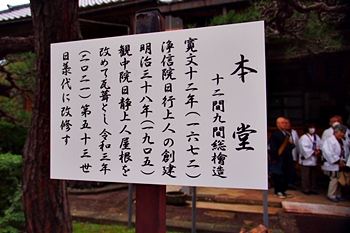 本堂
十二間九間総檜造
寛文十二年（一六七二）
浄信院日行上人の創建
明治三十八年（一九〇五）
観中院日静上人屋根を
改めて瓦葺とし令和三年
（二〇二一）第五十三世
日英代に改修す